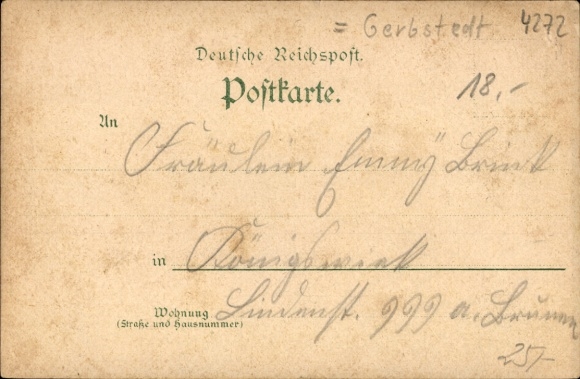 = Gerbstedt 4272
Deutsche Reichspost.
Postkarte.
18,-
An Fräulein Emmy Brink
in Königswiek
Wohnung Lindenst. 999 a. Brunnen
(Straße und Hausnummer)
25,-